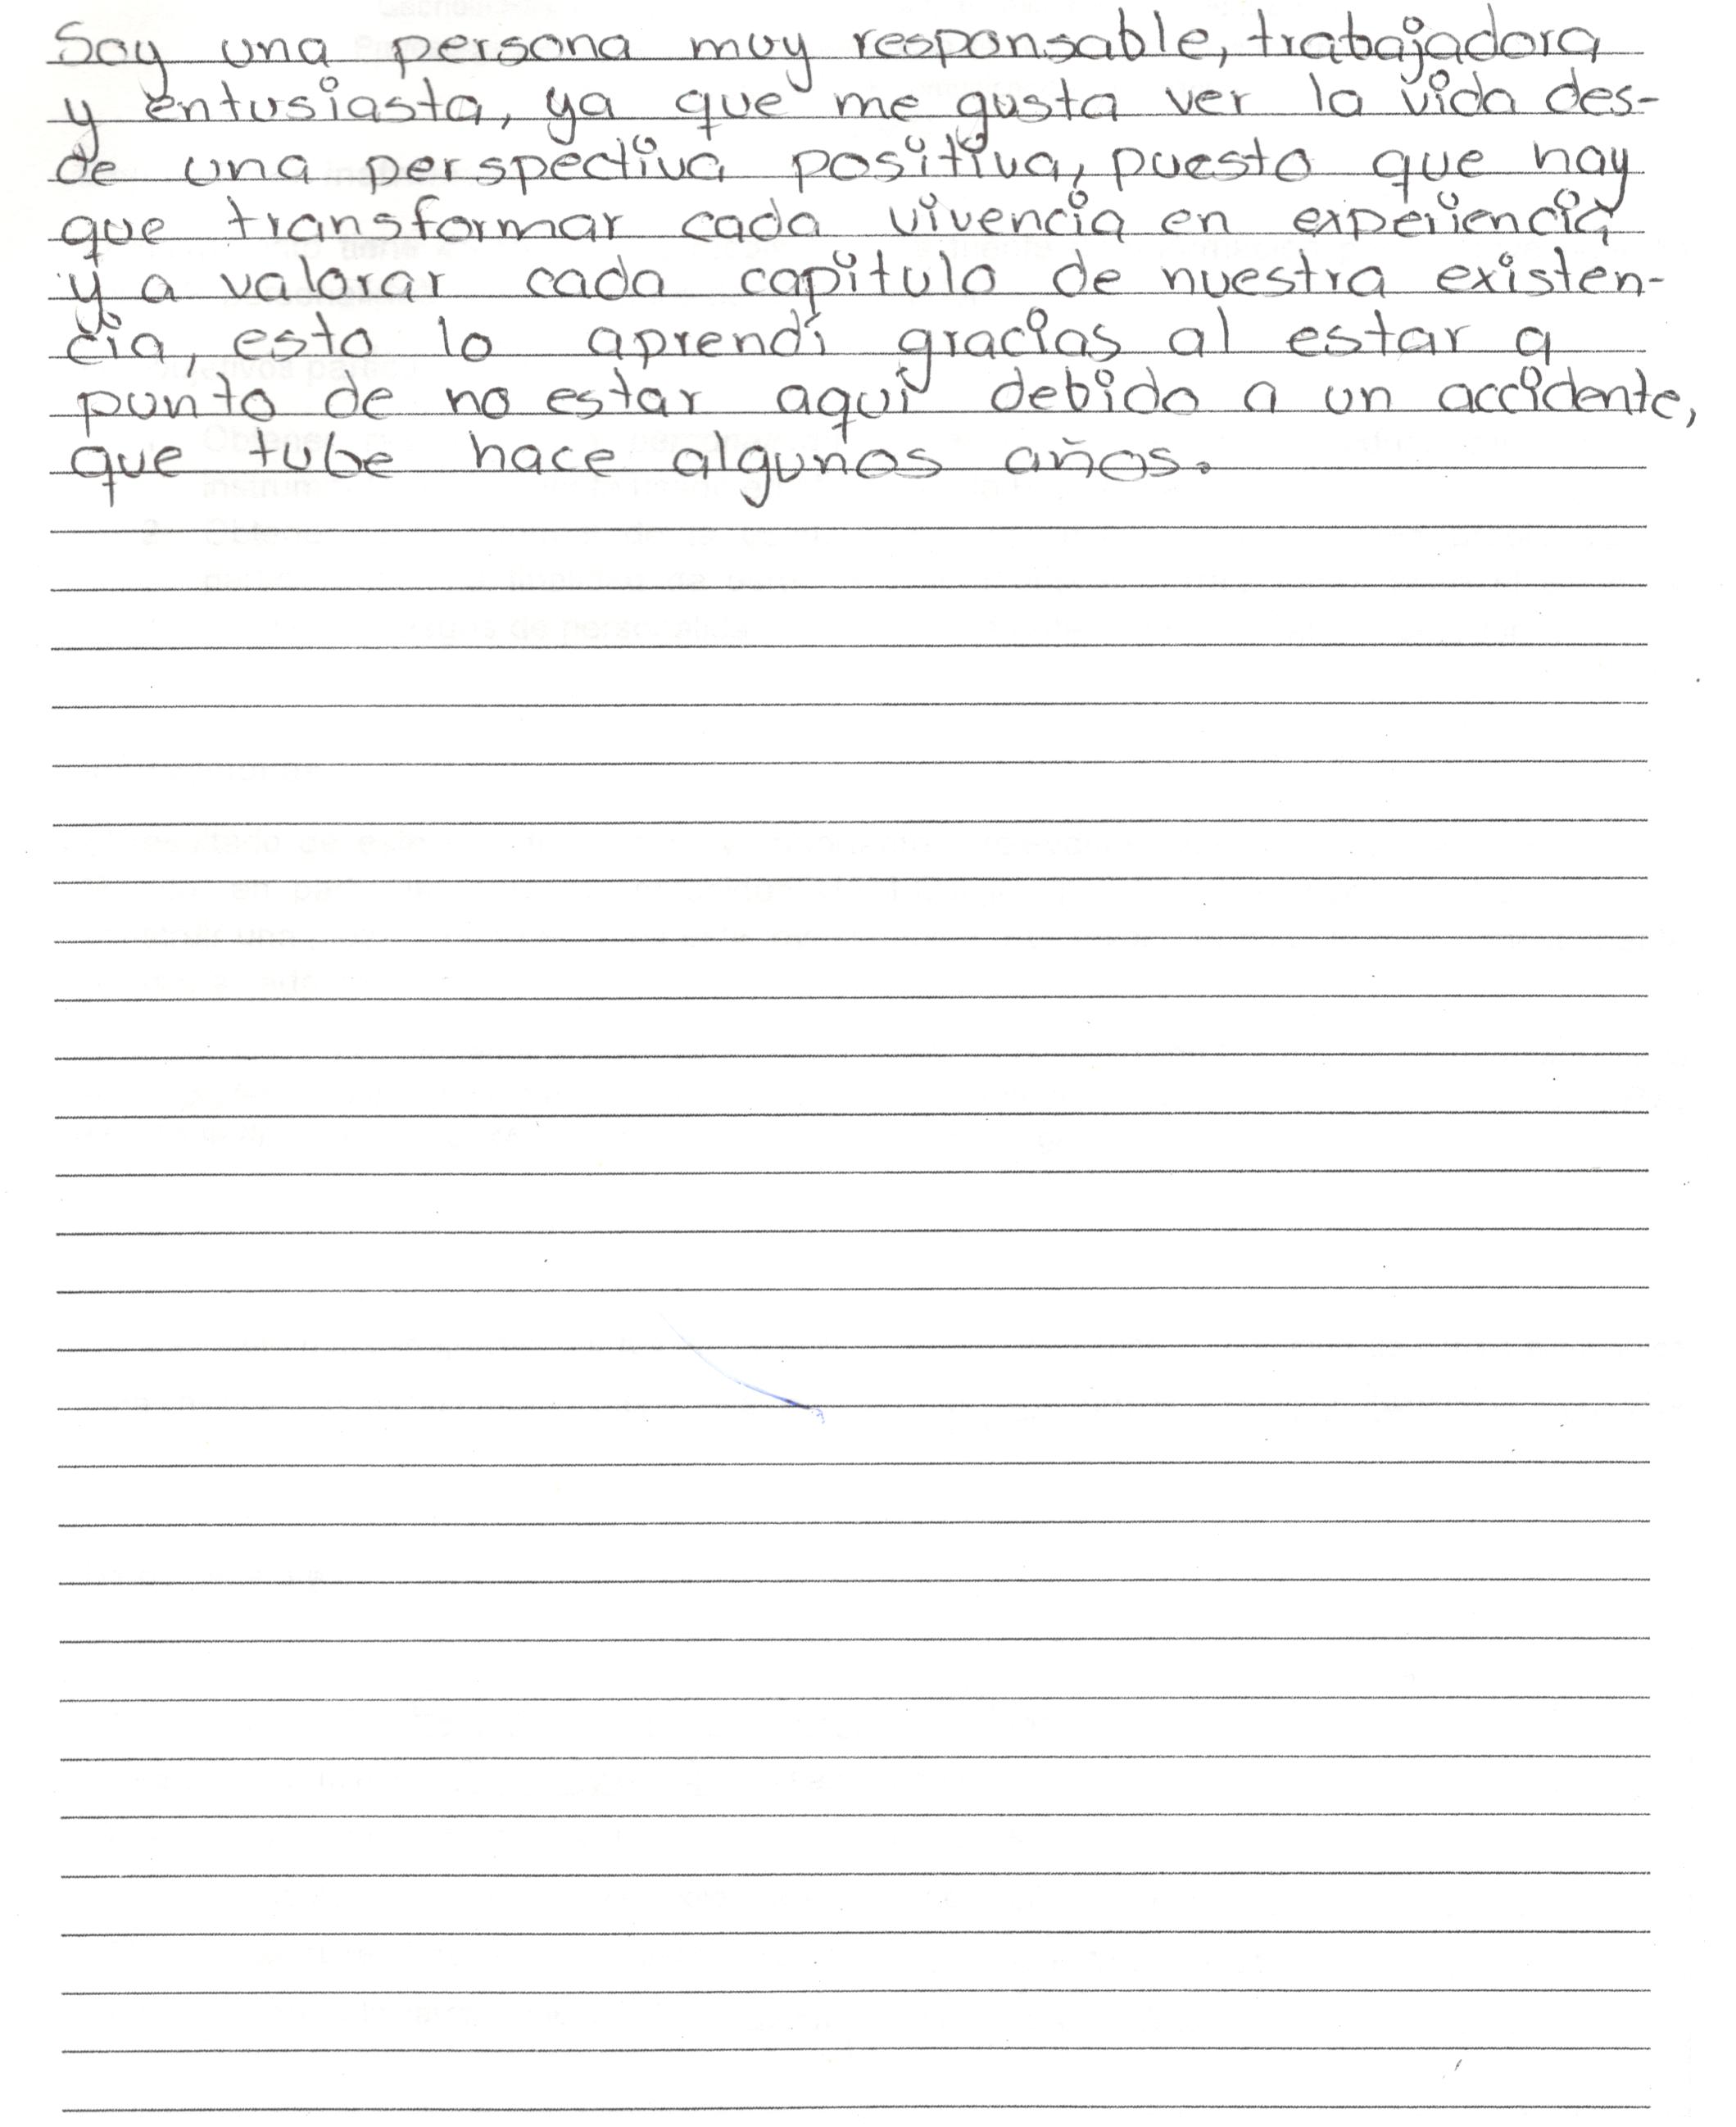 Soy una persona muy responsable, trabajadora
y entusiasta, ya que me gusta ver la vida des-
de una perspectiva positiva, puesto que hay
que transformar cada vivencia en experiencia
y a valorar cada capitulo de nuestra existen-
cia, esto lo aprendí gracias al estar a
punto de no estar aquí debido a un accidente,
que tube hace algunos años.